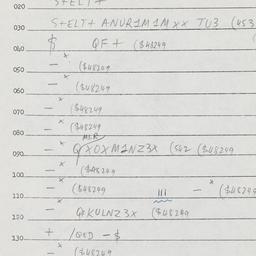 020 S+ELT+
030 S+ELT+ ANUR1M1Mxx TU3 (453
040 $ QF+ ($48249
050 — x ($48249
060 — x ($48249
070 — x ($48249
080 — x ($48249
MLR
090 — x QXOXM1NZ3X (542 ($48249
100 — x ($48249
110 — x ($48249 111 — x ($48249
120 — QKULNZ3X ($48249
130 + /QED — $
— x ($48249